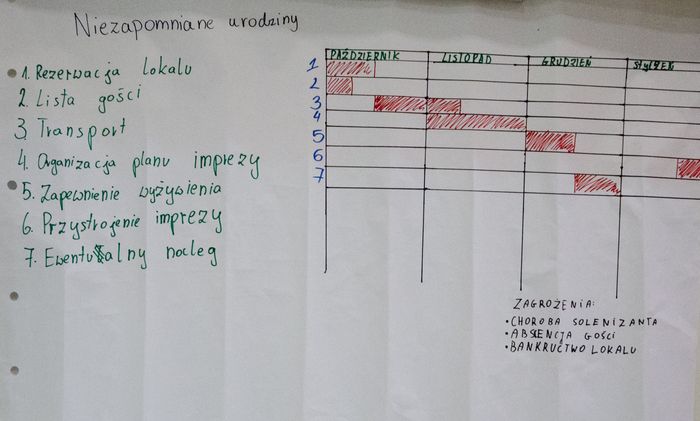 Niezapomniane urodziny
1. Rezerwacja lokalu
2. Lista gości
3. Transport
4. Organizacja planu imprezy
5. Zapewnienie wyżywienia
6. Przystrojenie imprezy
7. Ewentualny nocleg
PAŹDZIERNIK LISTOPAD GRUDZIEŃ STYCZEŃ
1
2
3
4
5
6
7
ZAGROŻENIA:
• CHOROBA SOLENIZANTA
• ABSENCJA GOŚCI
• BANKRUCTWO LOKALU